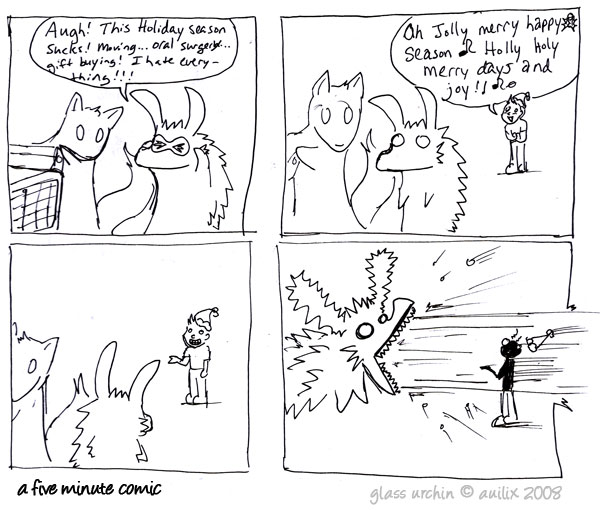 Augh! This Holiday season
sucks! Moving... oral surgery...
gift buying! I hate every-
thing!!!
Oh Jolly merry happy
season ♫ Holly holy
merry days and
joy!! ♪
a five minute comic
glass urchin © auilix 2008